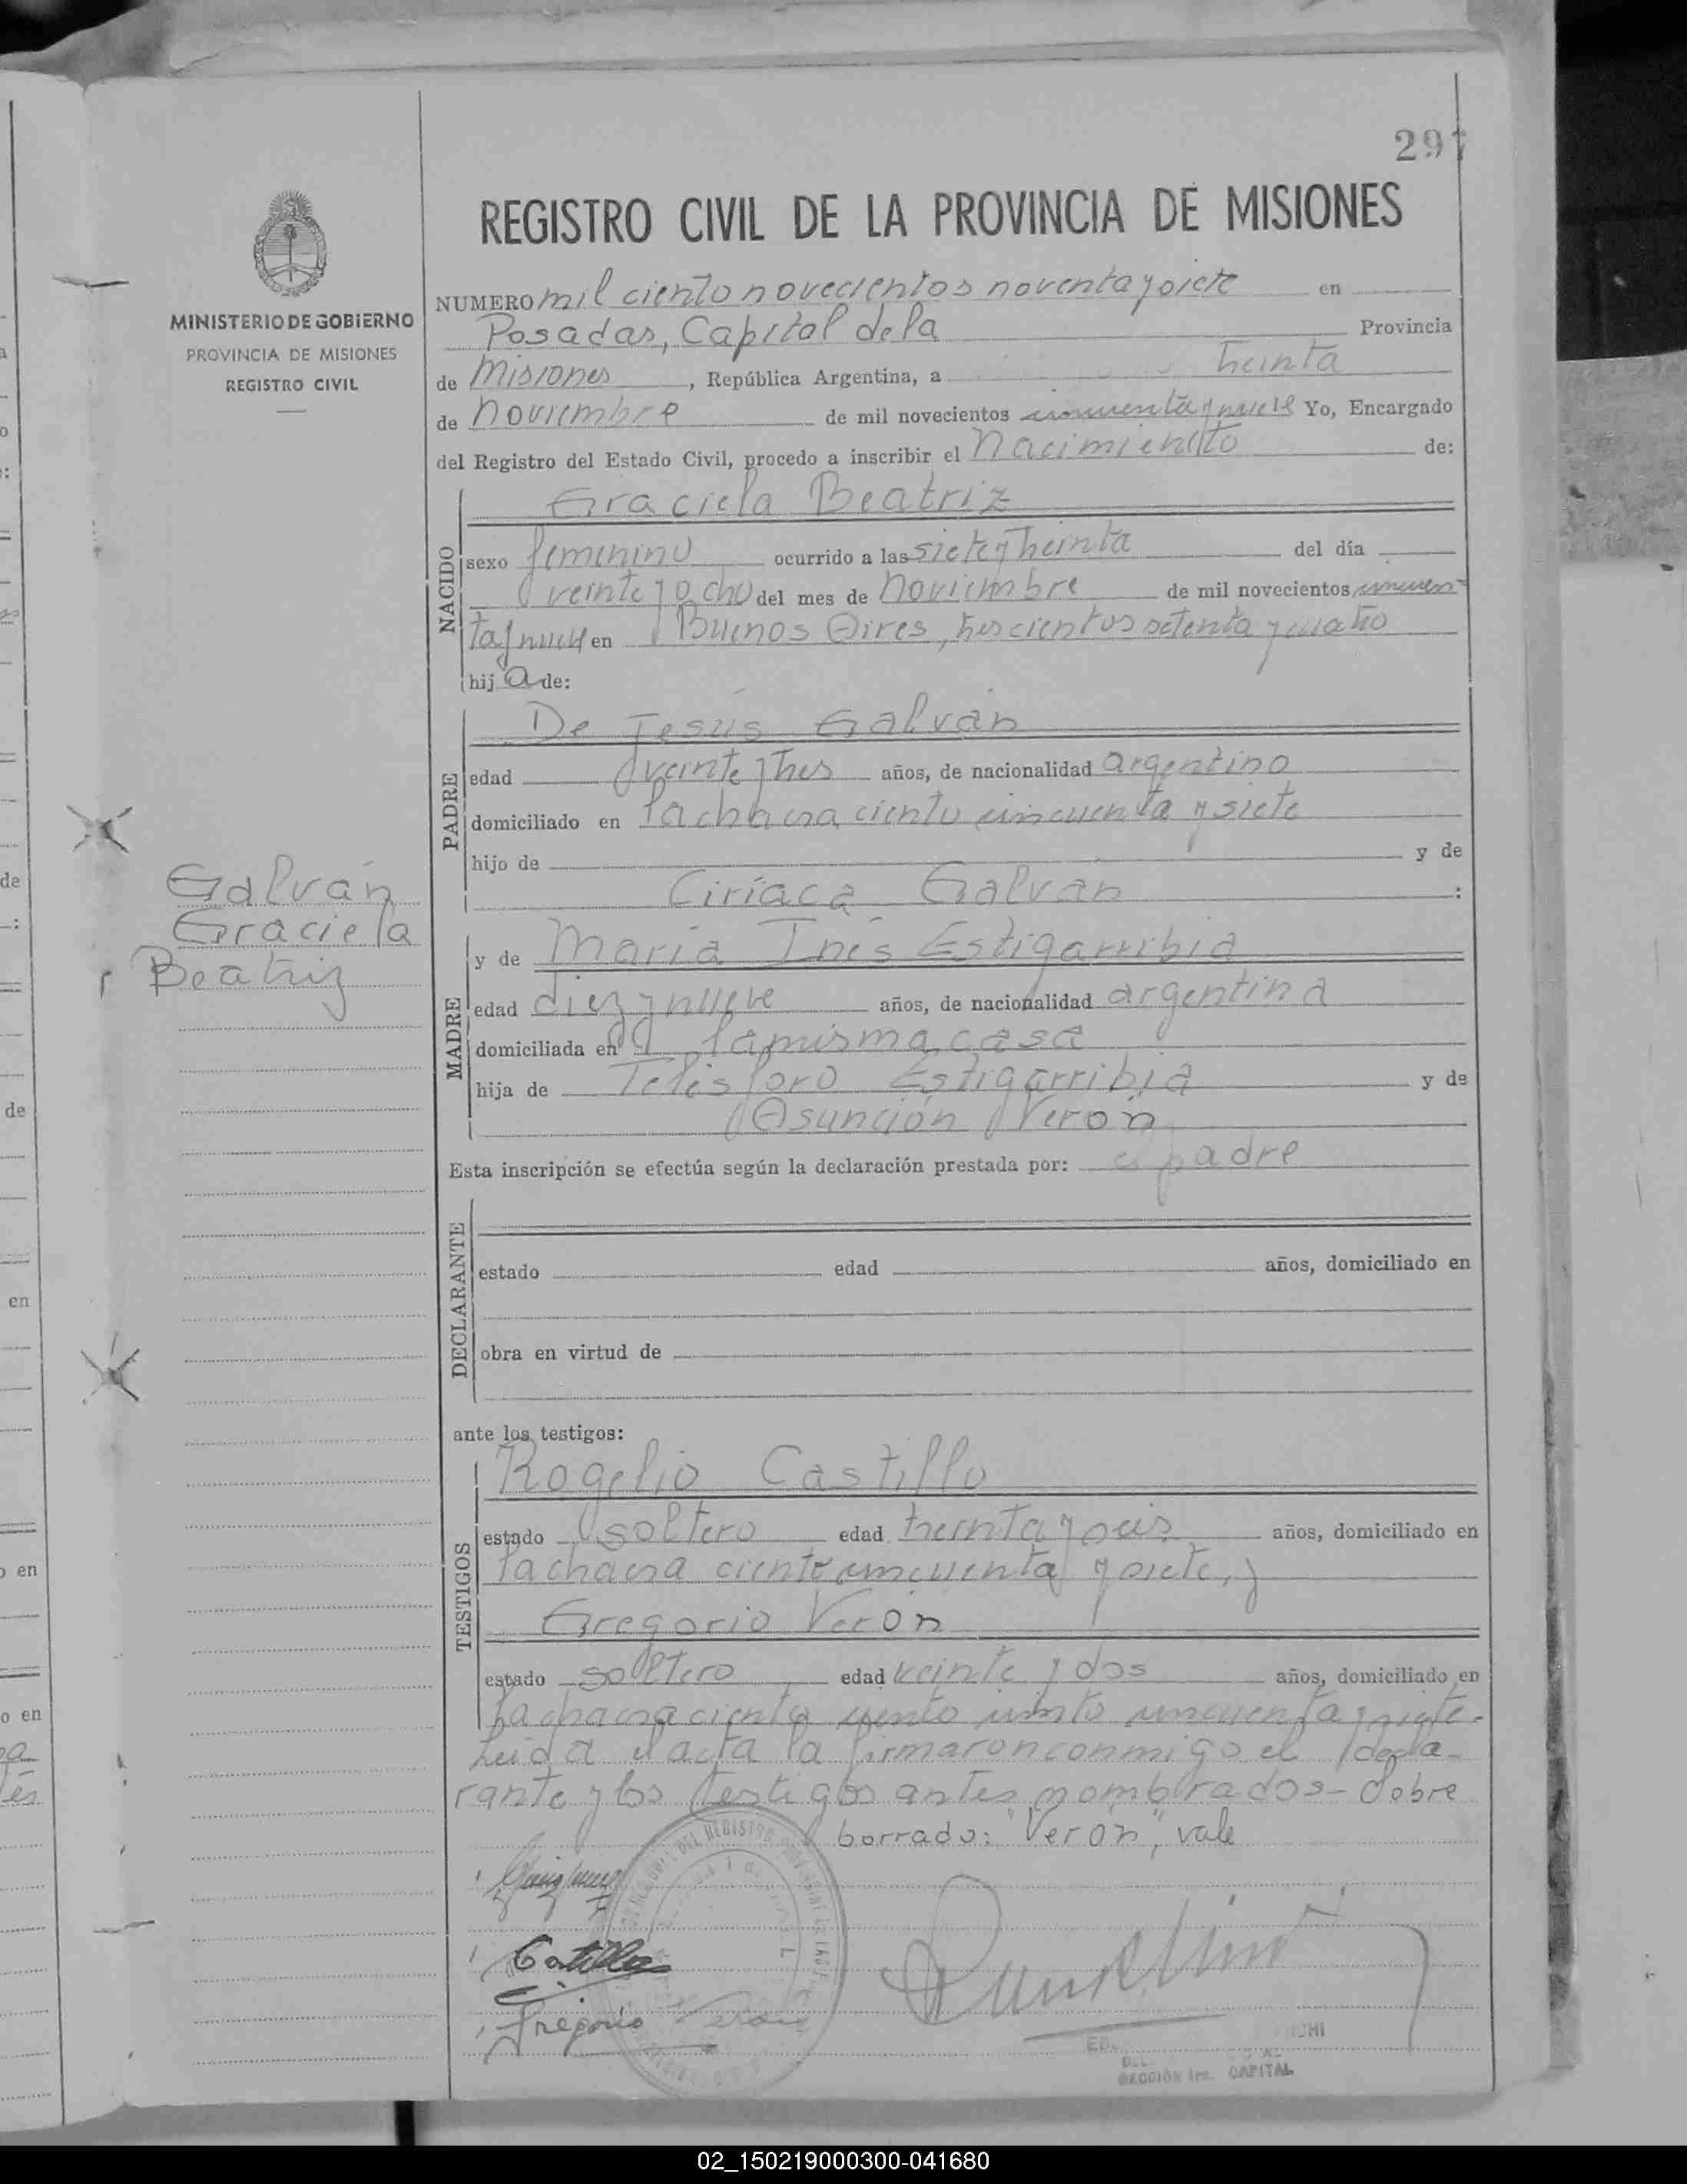 297
REGISTRO CIVIL DE LA PROVINCIA DE MISIONES
MINISTERIO DE GOBIERNO
PROVINCIA DE MISIONES
REGISTRO CIVIL
NUMERO mil ciento novecientos noventa y siete en
Posadas, Capital de la Provincia
de Misiones, República Argentina, a treinta
de noviembre de mil novecientos cincuenta y nueve Yo, Encargado
del Registro del Estado Civil, procedo a inscribir el Nacimiento de:
NACIDO
Graciela Beatriz
sexo femenino ocurrido a las siete y treinta del día
veinte y ocho del mes de noviembre de mil novecientos cincuen
ta y nueve en Buenos Aires, trescientos setenta y cuatro
hij a de:
PADRE
De Jesús Galván
edad veinte y tres años, de nacionalidad argentino
domiciliado en la chacra ciento cincuenta y siete
hijo de y de
Ciríaca Galván :
Galván
Graciela
Beatriz
MADRE
y de María Inés Estigarribia
edad diez y nueve años, de nacionalidad argentina
domiciliada en la misma casa
hija de Telésforo Estigarribia y de
Asunción Verón
Esta inscripción se efectúa según la declaración prestada por: el padre
DECLARANTE
estado edad años, domiciliado en
obra en virtud de
ante los testigos:
TESTIGOS
Rogelio Castillo
estado soltero edad treinta y seis años, domiciliado en
la chacra ciento cincuenta y siete, y
Gregorio Verón
estado soltero edad veinte y dos años, domiciliado en
la chacra ciento cincuenta y siete.
Leida el acta la firmaron conmigo el decla-
rante y los testigos antes nombrados- Sobre
borrado: "Verón", vale
Castillo
Gregorio Verón
CAPITAL
02_150219000300-041680